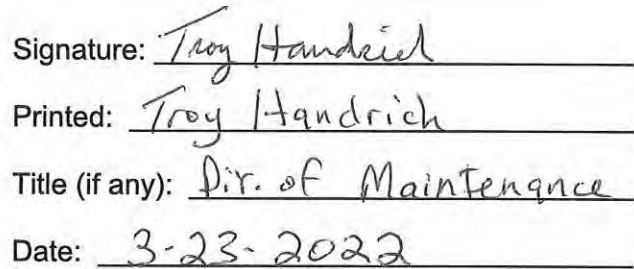 Signature: Troy Handrich
Printed: Troy Handrich
Title (if any): Dir. of Maintenance
Date: 3-23-2022